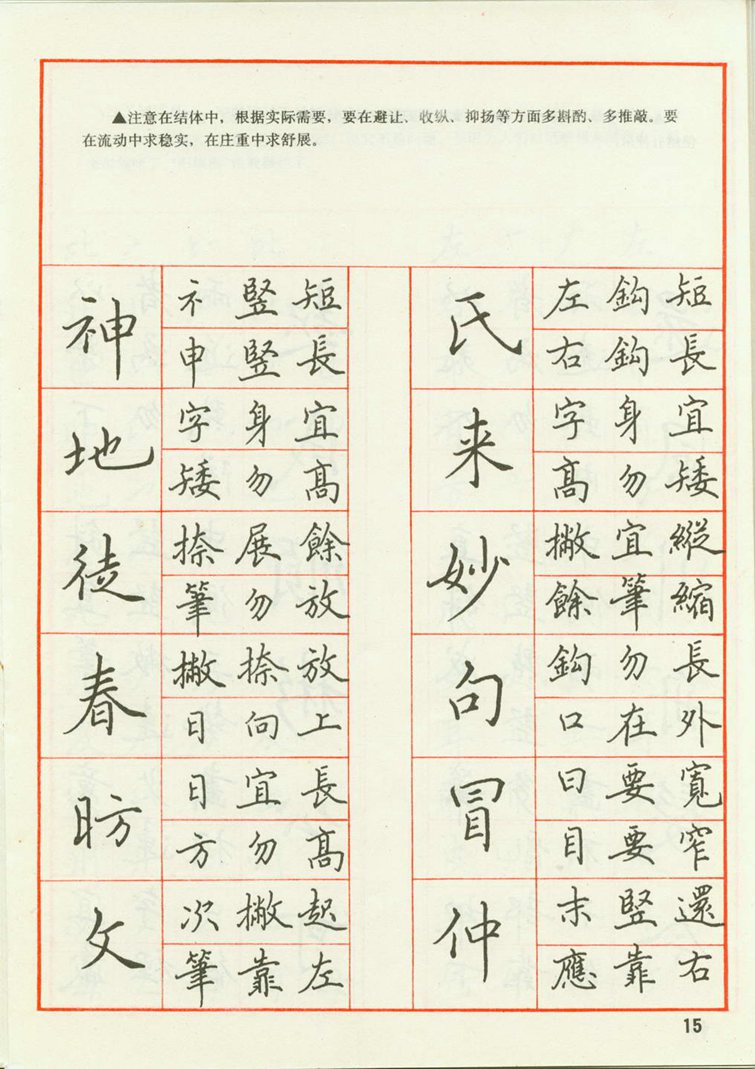 ▲注意在结体中，根据实际需要，要在避让、收纵、抑扬等方面多斟酌、多推敲。要
在流动中求稳实，在庄重中求舒展。
神
礻竖短
申竖長
地
字身宜
矮勿高
徒
捺展餘
筆勿放
春
撇捺放
日向上
昉
日宜長
方勿高
文
次撇起
筆靠左
氏
左鈎短
右鈎長
来
字身宜
高勿矮
妙
撇宜縱
餘筆縮
句
鈎勿長
口在外
冒
曰要寬
目要窄
仲
末竖還
應靠右
15